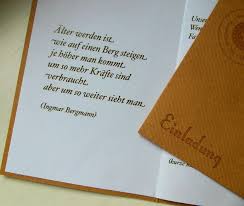 Älter werden ist
wie auf einen Berg steigen
je höher man kommt
um so mehr Kräfte sind
verbraucht
aber um so weiter sieht man.
(Ingmar Bergmann)
Unse
Wo
Fa
(kurze
Einladung